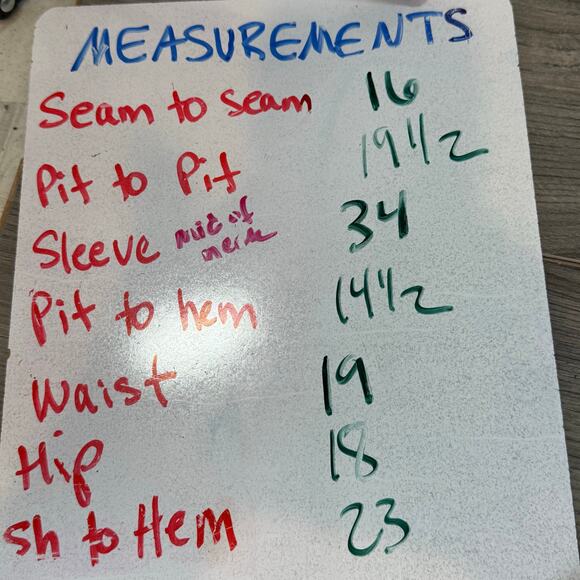 MEASUREMENTS
Seam to Seam 16
Pit to Pit 19 1/2
Sleeve mid of neck 34
Pit to hem 14 1/2
Waist 19
Hip 18
Sh to Hem 23